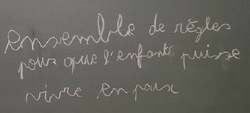 ensemble de règles
pour que l'enfant puisse
vivre en paix